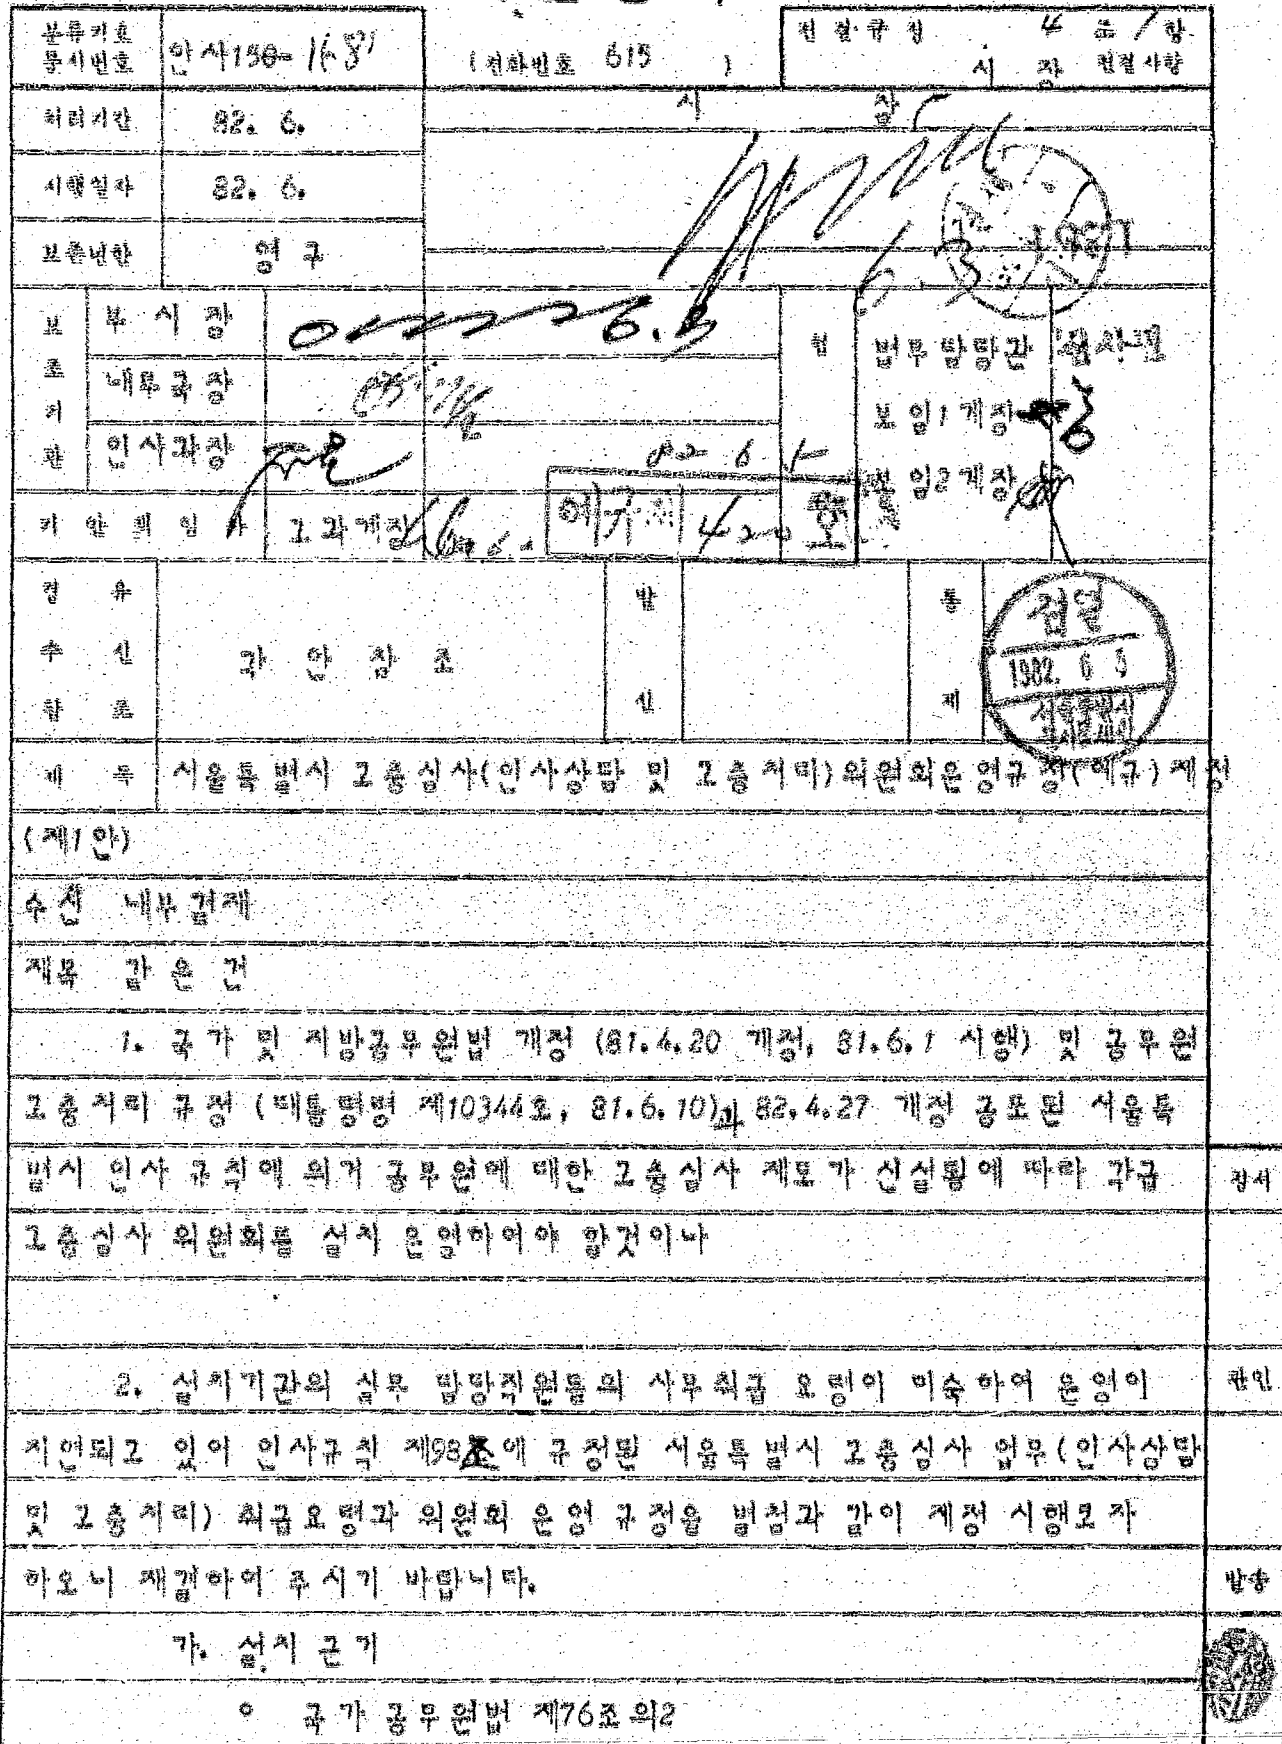 분류기호
문서번호
인사150-
(전화번호 615 )
전결규정 4조 1항
시장 전결사항
처리기간 82. 6.
시 장
시행일자 82. 6.
보존년한 영구
보조기관
부시장 6.3
내무국장
인사과장
법무담당관
보임1계장
보임2계장
82 6 5
예규제 420 호
기안책임자 고과계장
경유
수신
참조
과안참조
발신
통제
검열
1982. 6 5
서울특별시
제목 서울특별시 고충심사(인사상담 및 고충처리)위원회운영규정(예규)제정
(제1안)
수신 내부결재
제목 같은 건
1. 국가 및 지방공무원법 개정 (81.4.20 개정, 81.6.1 시행) 및 공무원
고충처리 규정 (대통령령 제10344호, 81.6.10)과 82.4.27 개정 공포된 서울특
별시 인사 규칙에 의거 공무원에 대한 고충심사 제도가 신설됨에 따라 각급
정서
고충심사 위원회를 설치 운영하여야 할것이나
2. 설치기관의 실무 담당직원들의 사무취급 요령이 미숙하여 운영이
관인
지연되고 있어 인사규칙 제98조에 규정된 서울특별시 고충심사 업무(인사상담
및 고충처리) 취급요령과 위원회 운영 규정을 별첨과 같이 제정 시행코자
하오니 재결하여 주시기 바랍니다.
발송
가. 설치 근거
o 국가공무원법 제76조의2